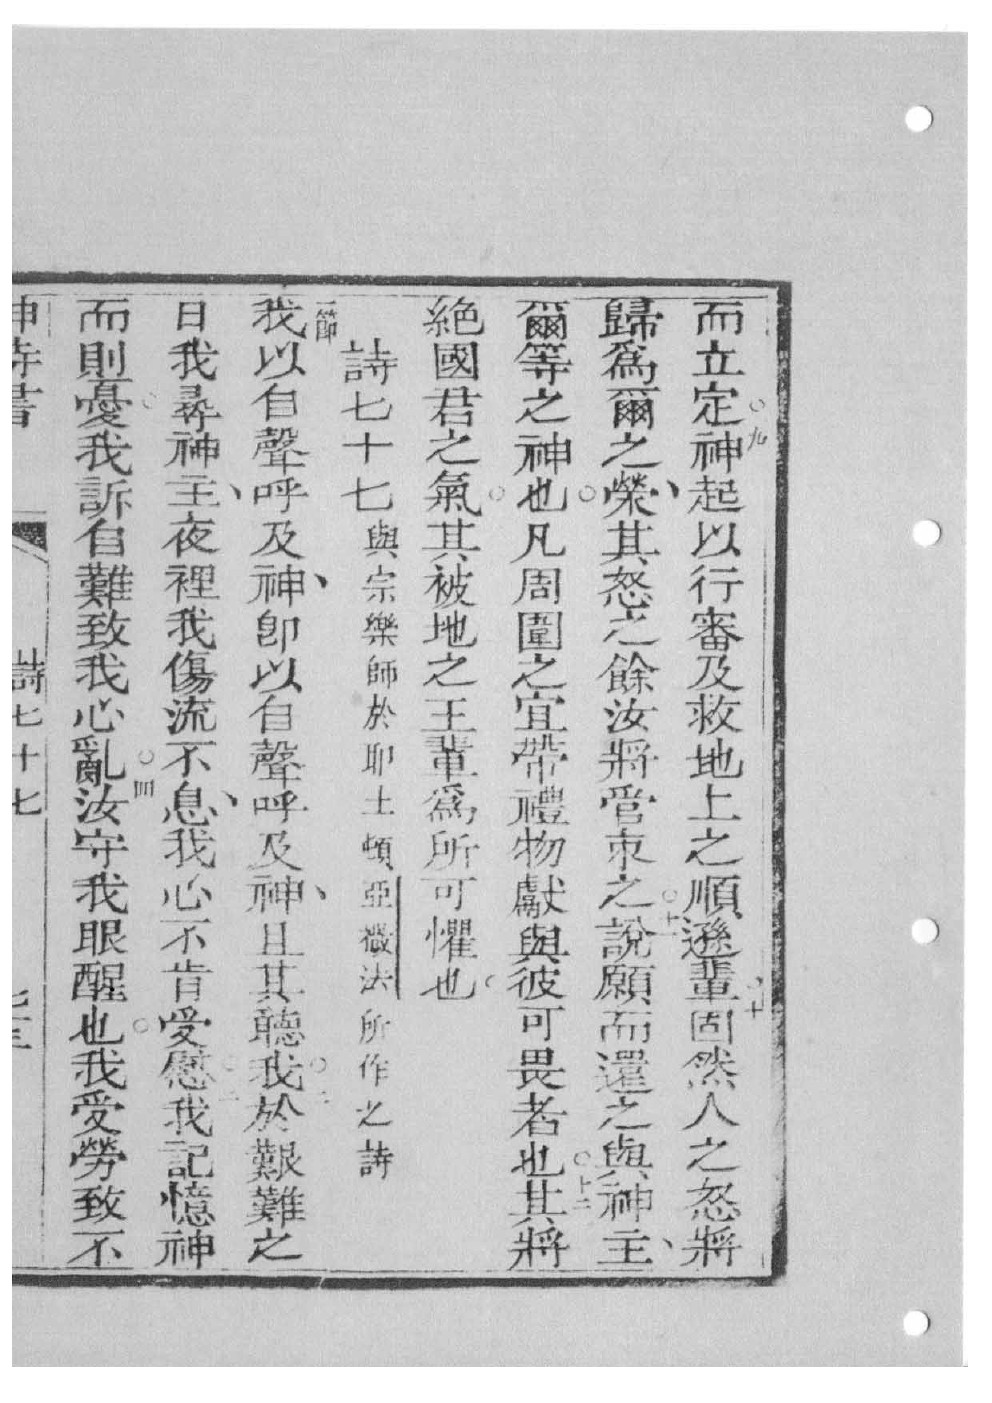 而立定神起以行審及救地上之順遜輩固然人之怒將
歸為爾之榮其怒之餘汝將管束之說願而還之與神主
爾等之神也凡周圍之宜帶禮物獻與彼可畏者也其將
絕國君之氣其被地之王輩為所可懼也
詩七十七 與宗樂師於耶土頓亞薇法所作之詩
一節 我以自聲呼及神卽以自聲呼及神且其聽我於艱難之
日我尋神主夜裡我傷流不息我心不肯受慰我記憶神
而則憂我訴自難致我心亂汝守我眼醒也我受勞致不
詩七十七